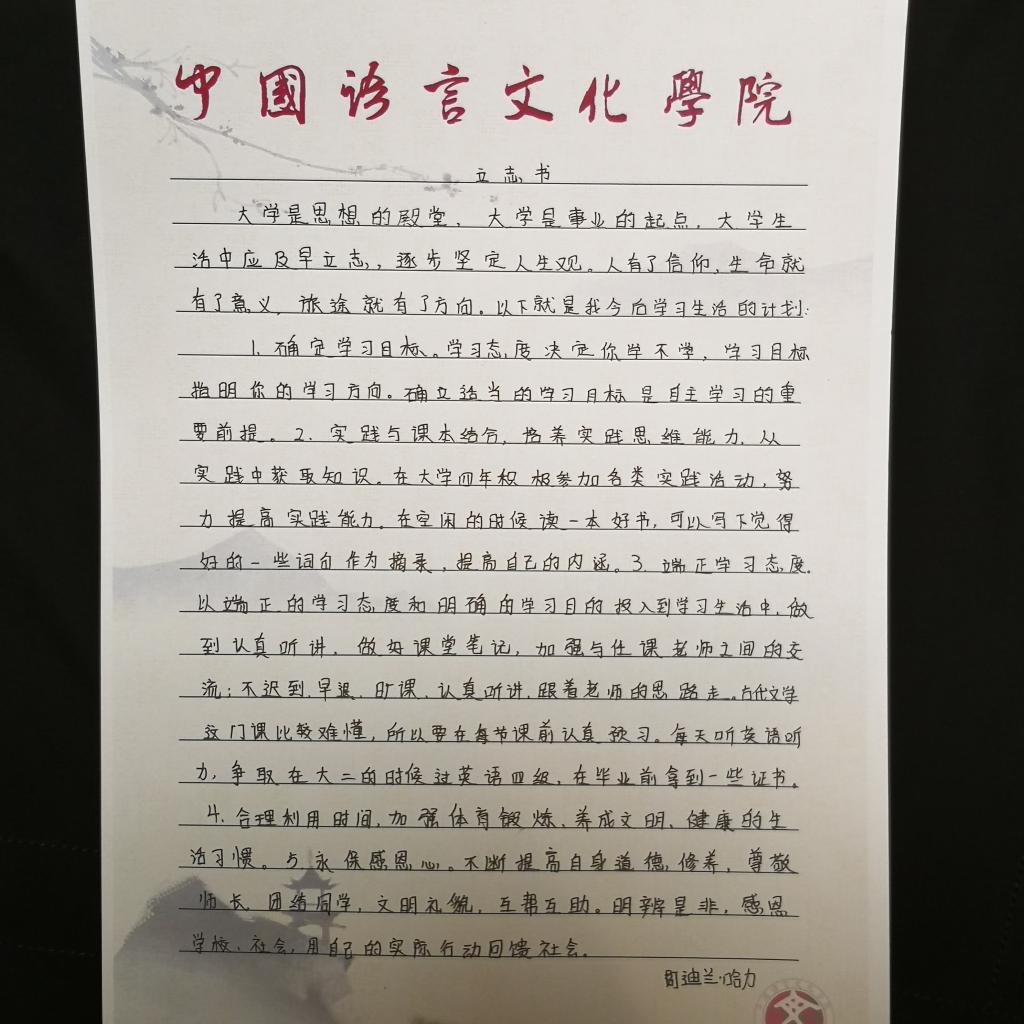 中國语言文化學院
立志书
大学是思想的殿堂、大学是事业的起点,大学生
活中应及早立志,逐步坚定人生观。人有了信仰,生命就
有了意义,旅途就有了方向。以下就是我今后学习生活的计划:
1.确定学习目标。学习态度决定你学不学,学习目标
指明你的学习方向。确立适当的学习目标是自主学习的重
要前提。2.实践与课本结合,培养实践思维能力,从
实践中获取知识。在大学四年积极参加各类实践活动,努
力提高实践能力。在空闲的时候读一本好书,可以写下觉得
好的一些词句作为摘录,提高自己的内涵。3.端正学习态度.
以端正的学习态度和明确的学习目的投入到学习生活中,做
到认真听讲,做好课堂笔记,加强与任课老师之间的交
流;不迟到、早退、旷课、认真听讲,跟着老师的思路走。古代文学
这门课比较难懂,所以要在每节课前认真预习。每天听英语听
力,争取在大二的时候过英语四级,在毕业前拿到一些证书。
4.合理利用时间,加强体育锻炼、养成文明、健康的生
活习惯。5.永保感恩心。不断提高自身道德修养,尊敬
师长、团结同学,文明礼貌,互帮互助。明辨是非,感恩
学校、社会,用自己的实际行动回馈社会。
迪兰·哈力